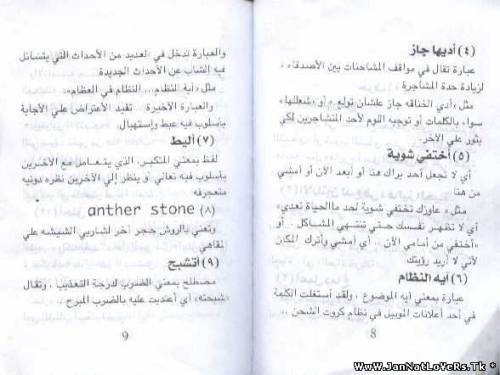 (٤) أديها جاز
عبارة تقال في مواقف المشاحنات بين الأصدقاء ،
لزيادة حدة المشاجرة
مثل «أدي الخناقه جاز علشان تولع » أو «شعللها»
سواء بالكلمات أو توجيه اللوم لأحد المتشاجرين لكي
يثور علي الآخر.
(٥) أختفي شوية
أي لا تجعل أحد يراك هنا أو أبعد الآن أو أمشي
من هنا .
مثل « عاوزك تختفي شوية لحد ماالحياة تعدي»
أي لا تظهر نفسك حتي تنتهي المشاكل . أو
«أختفي من أمامي الآن .. أي إمشي وأترك المكان
لأني لا أريد رؤيتك.
(٦) ايه النظام
عبارة بمعني ايه الموضوع ، ولقد أستغلت الكلمة
في أحد أعلانات الموبيل في نظام كروت الشحن ..
8
والعبارة تدخل في العديد من الأحداث التي يتسائل
فيه الشاب عن الأحداث الجديدة .
مثل «أية النظام... النظام في العظام»:
والعبارة الأخيرة تفيد الأعتراض علي الأجابة
بأسلوب فيه عبط وإستهبال.
(٧) أليط
لفظ بمعني المتكبر. الذي يتعامل مع الآخرين
بأسلوب فيه تعالي أو ينظر إلي الآخرين نظره دونيه
متعجرفه
(٨) anther stone
وتعني بالروش حجر أخر لشاربي الشيشه علي
القاهي
(٩) أتشبح
مصطلح بمعني الضرب لدرجة التعذيب ، وتقال
«شبحته» أي أعتديت عليه بالضرب المبرح .
9
WwW.JanNatLoVeRs.Tk *